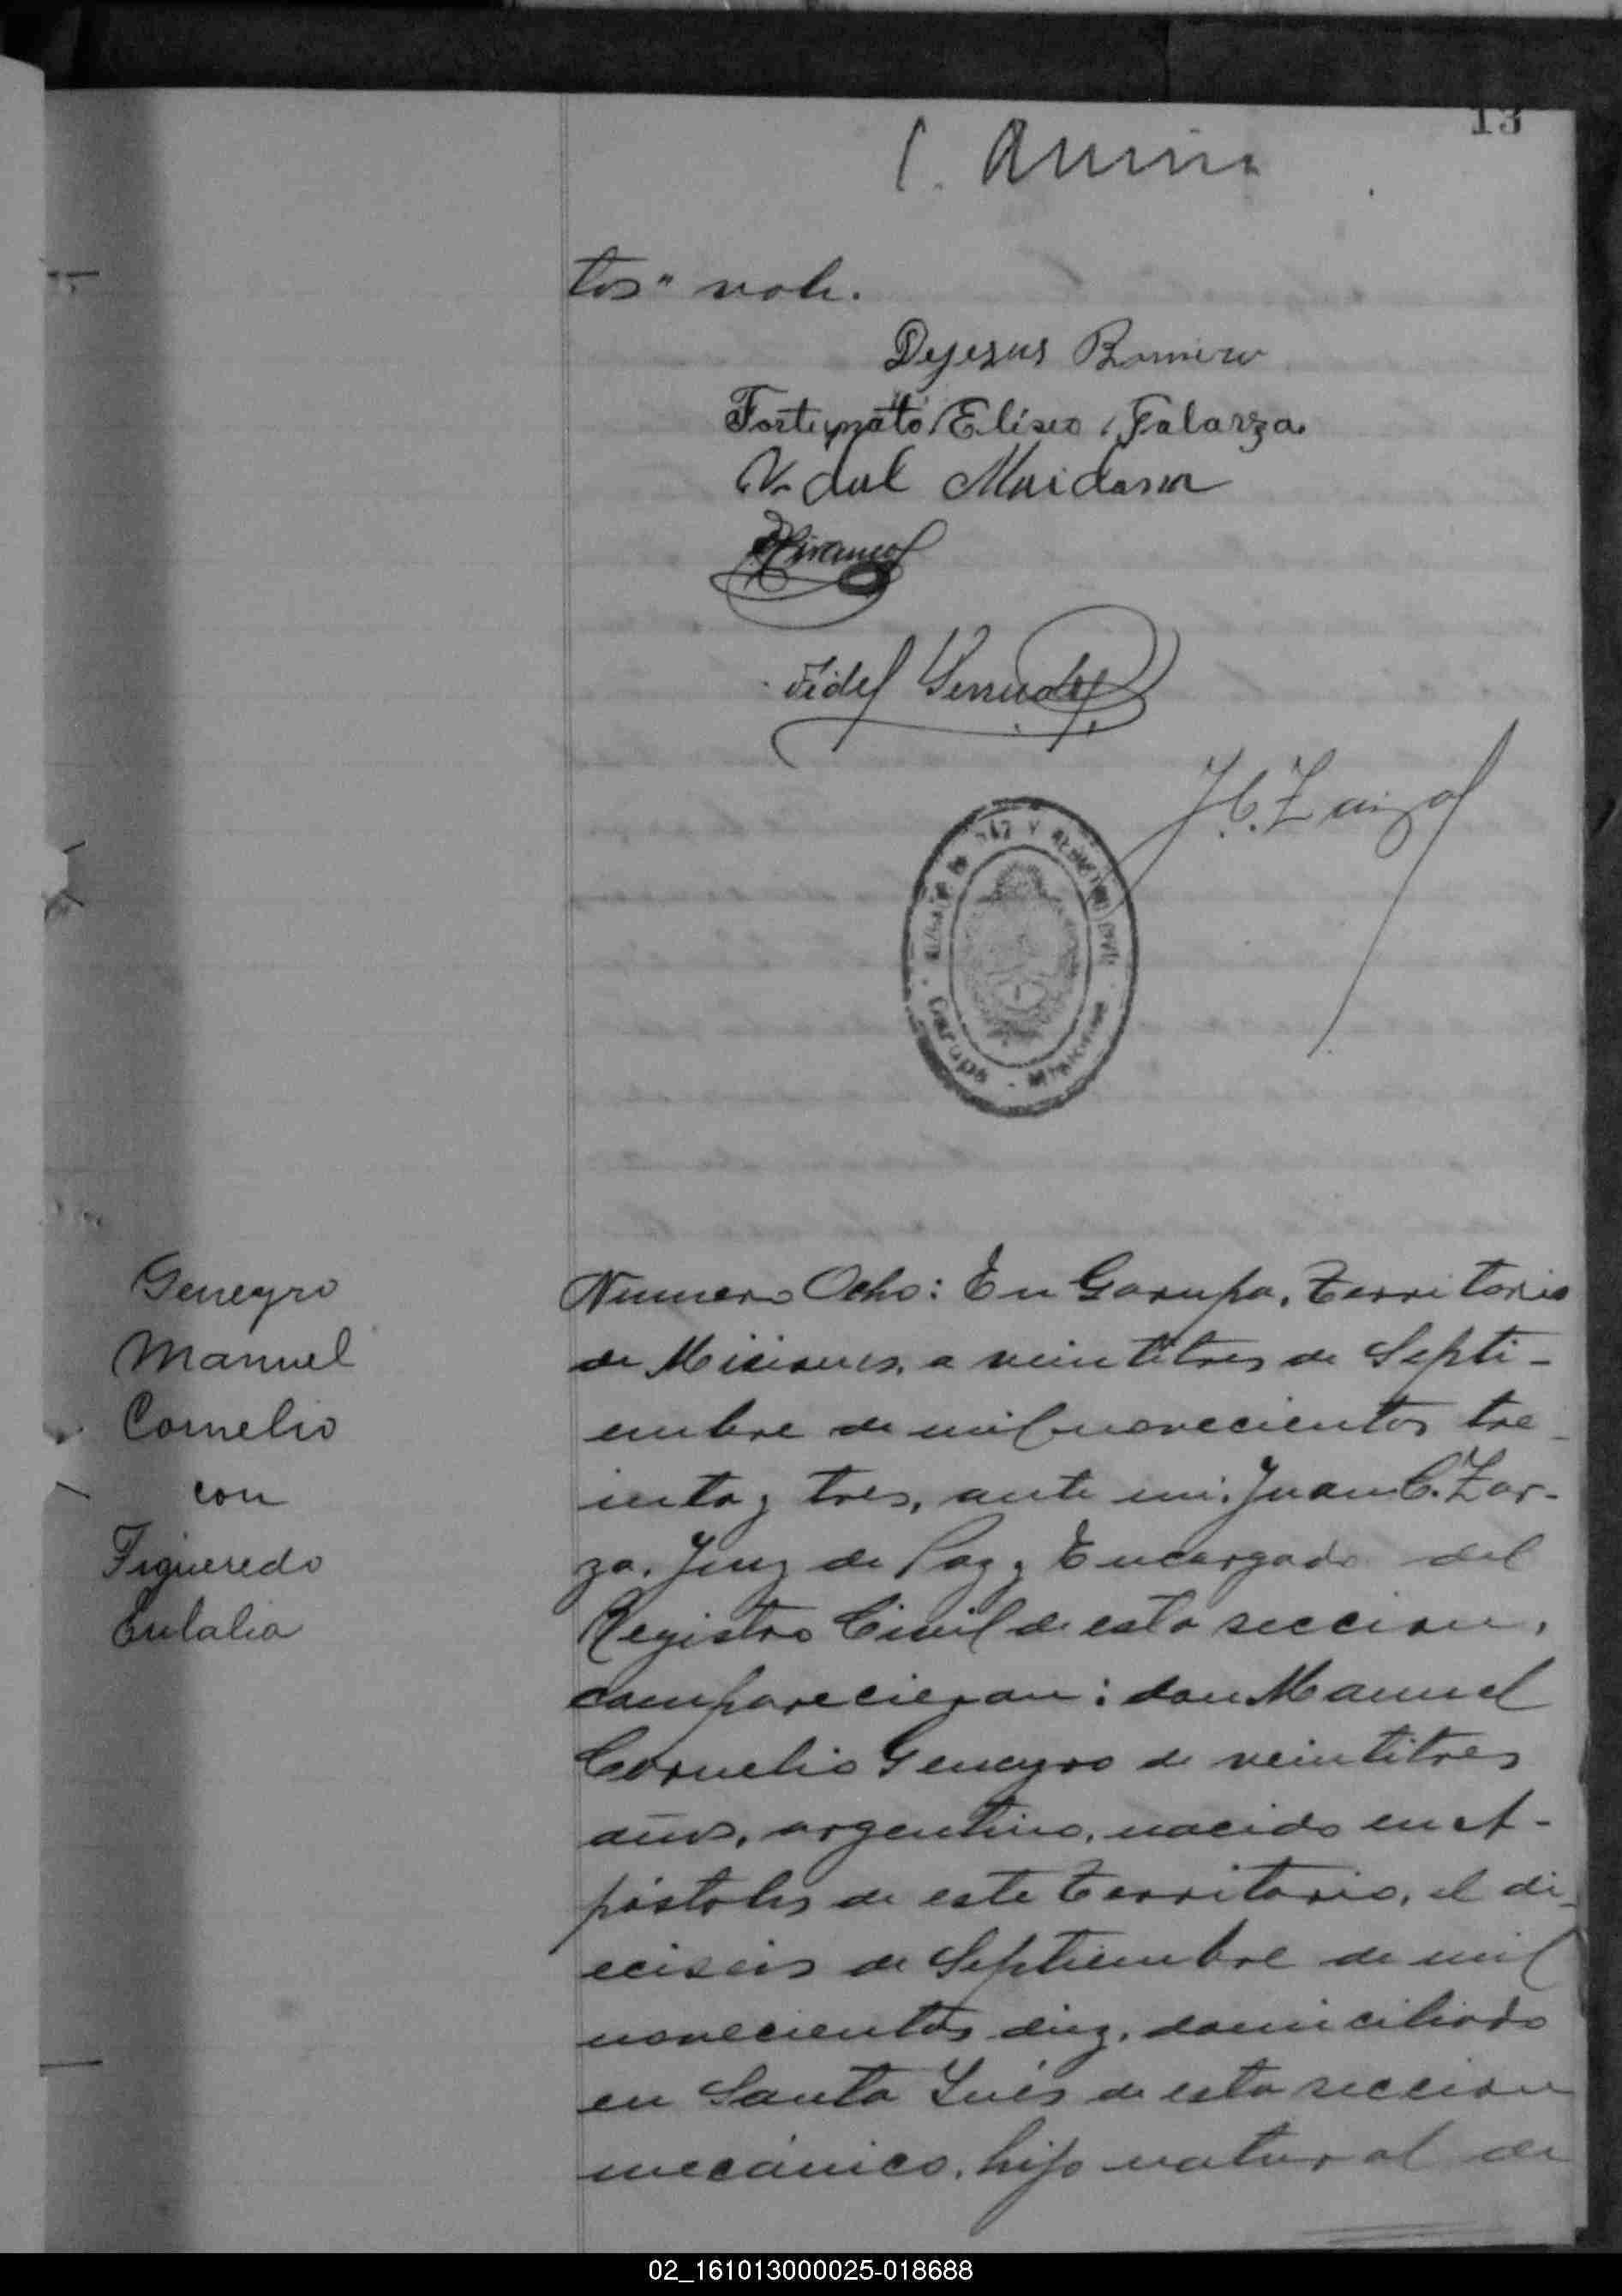 13
tos" vale.
Dejesus Romero
Fortunato Eliseo Galarza
Vidal Maidana
Fidel
J. C. Zarza
Juzgado de Paz y Registro Civil
Garupá - Misiones
Geneyro
Manuel
Cornelio
con
Figueredo
Eulalia
Numero Ocho: En Garupa, Territorio
de Misiones, a veintitres de Septi-
embre de mil novecientos tre-
inta y tres, ante mi, Juan C. Zar-
za, Juez de Paz y Encargado del
Registro Civil de esta seccion,
comparecieron: don Manuel
Cornelio Geneyro de veintitres
años, argentino, nacido en A-
póstoles de este territorio, el di-
eciseis de Septiembre de mil
novecientos diez, domiciliado
en Santa Inés de esta seccion
mecánico, hijo natural de
02_161013000025-018688